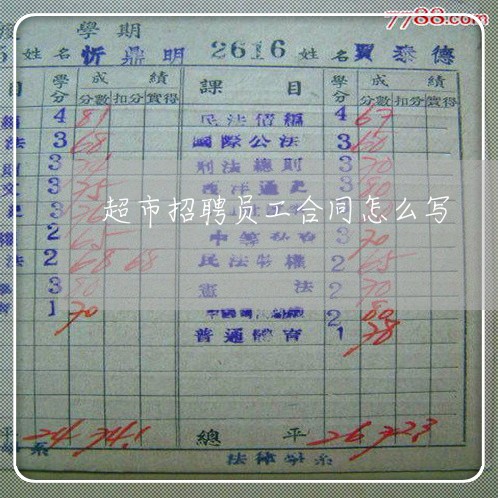 7788.com
學期
姓名 忻鼎明 2616 姓名 賈泰德
目 學分 成績 課目 學分 成績
分數 扣分 實得 分數 扣分 實得
4 81 民法債編 4 67
法 3 68 國際公法 3 60
3 刑法總則 3 70
3 75 西洋通史 3 80
超市招聘员工合同怎么写
2 65 3 70
法 2 68 68 民法物權 2 65
3 80 憲法 2 70
1 70 2 80
普通體育 1 78
平 24 74.1 總平 26 72.3
系 法律學系